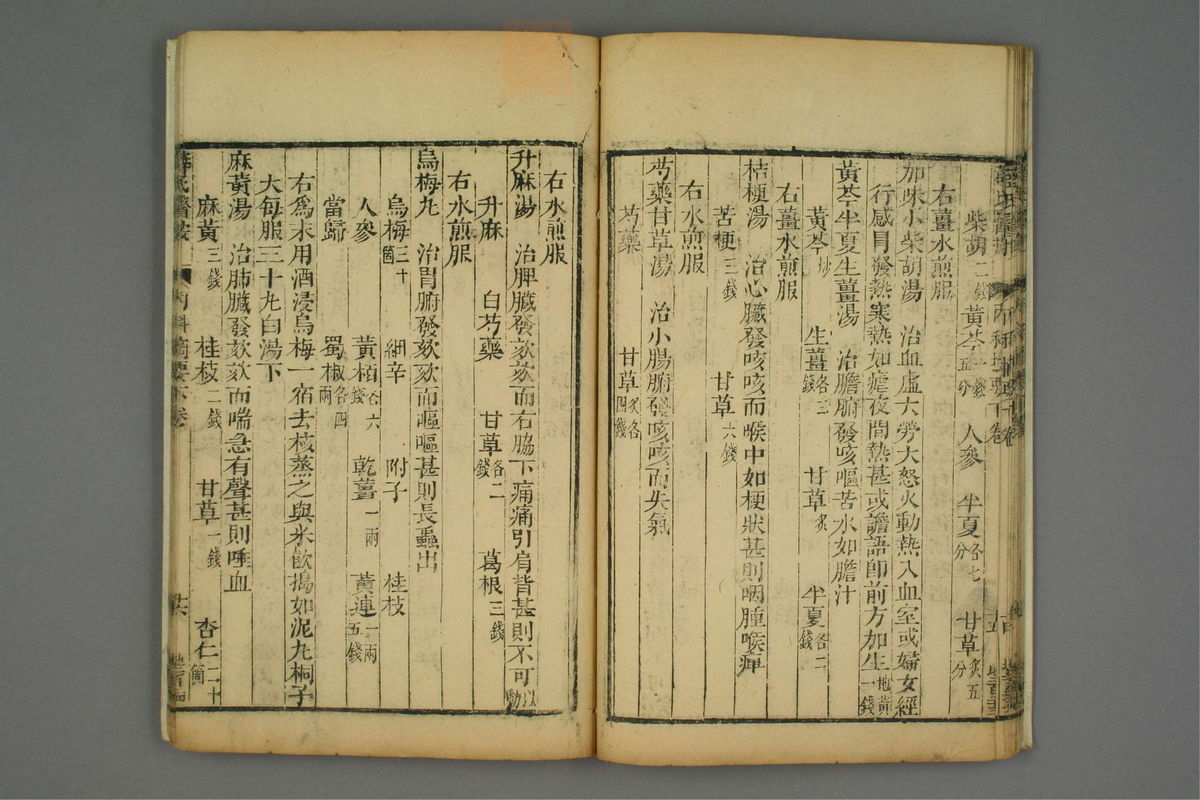 柴胡二錢 黃芩一錢五分 人參 半夏各七分 甘草炙五分
右薑水煎服
加味小柴胡湯 治血虛大勞大怒火動熱入血室或婦女經
行感冒發熱寒熱如瘧夜間熱甚或譫語卽前方加生地黃一錢
黃芩半夏生薑湯 治膽腑發咳嘔苦水如膽汁
黃芩炒 生薑各三 甘草炙 半夏各二錢
右薑水煎服
桔梗湯 治心臟發咳咳而喉中如梗狀甚則咽腫喉痺
苦梗三錢 甘草六錢
右水煎服
芍藥甘草湯 治小腸腑發咳咳而失氣
芍藥 甘草炙各四錢
右水煎服
升麻湯 治脾臟發欬欬而右脇下痛痛引肩背甚則不可以動
升麻 白芍藥 甘草各二錢 葛根三錢
右水煎服
烏梅丸 治胃腑發欬欬而嘔嘔甚則長蟲出
烏梅三十箇 細辛 附子 桂枝
人參 黃栢各六錢 乾薑一兩 黃連一兩五錢
當歸 蜀椒各四兩
右爲末用酒浸烏梅一宿去核蒸之與米飮搗如泥丸桐子
大每服三十丸白湯下
麻黃湯 治肺臟發欬欬而喘急有聲甚則唾血
麻黃三錢 桂枝二錢 甘草一錢 杏仁二十箇
薛氏醫按 內科摘要下卷